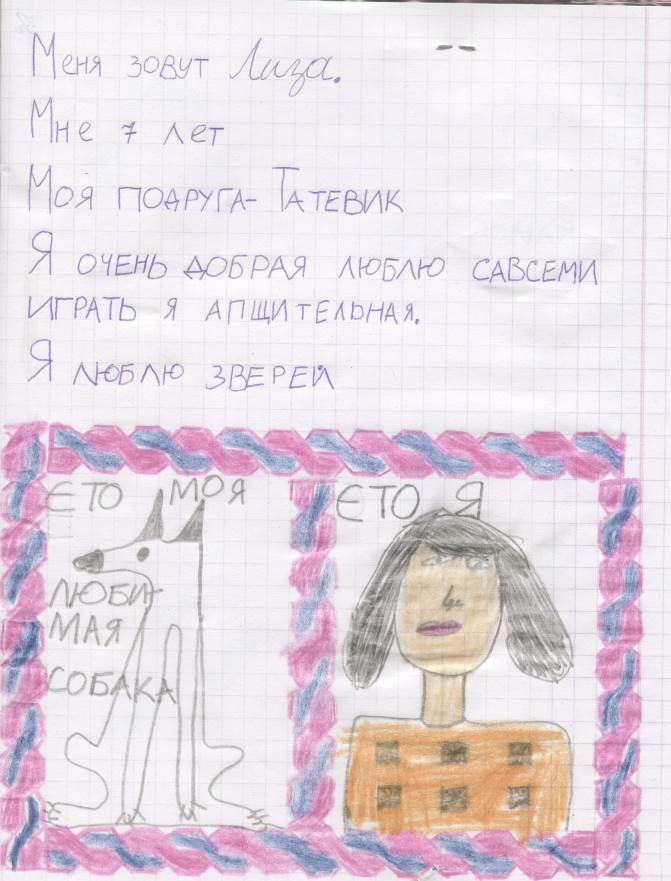 Меня зовут Лиза.
Мне 7 лет
Моя подруга- Татевик
Я очень добрая люблю савсеми
играть я апщительная.
Я люблю зверей
ЄТО МОЯ
ЛЮБИ-
МАЯ
СОБАКА
ЄТО Я